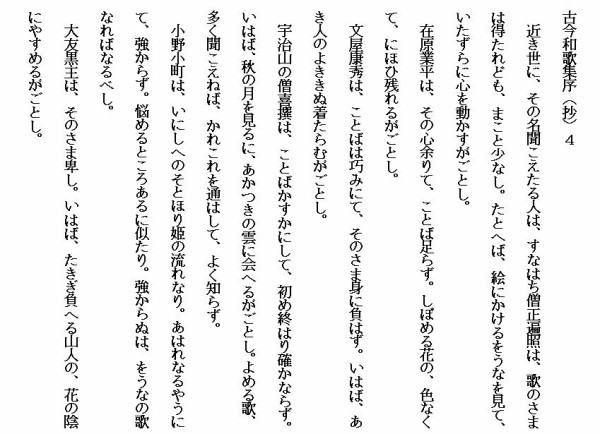 古今和歌集序(抄) 4
近き世に、その名聞こえたる人は、すなはち僧正遍照は、歌のさま
は得たれども、まこと少なし。たとへば、絵にかけるをうなを見て、
いたずらに心を動かすがごとし。
在原業平は、その心余りて、ことば足らず。しぼめる花の、色なく
て、にほひ残れるがごとし。
文屋康秀は、ことばは巧みにて、そのさま身に負はず。いはば、あ
き人のよききぬ着たらむがごとし。
宇治山の僧喜撰は、ことばかすかにして、初め終はり確かならず。
いはば、秋の月を見るに、あかつきの雲に会へるがごとし。よめる歌、
多く聞こえねば、かれこれを通はして、よく知らず。
小野小町は、いにしへのそとほり姫の流れなり。あはれなるやうに
て、強からず。悩めるところあるに似たり。強からぬは、をうなの歌
なればなるべし。
大友黒主は、そのさま卑し。いはば、たきぎ負へる山人の、花の陰
にやすめるがごとし。